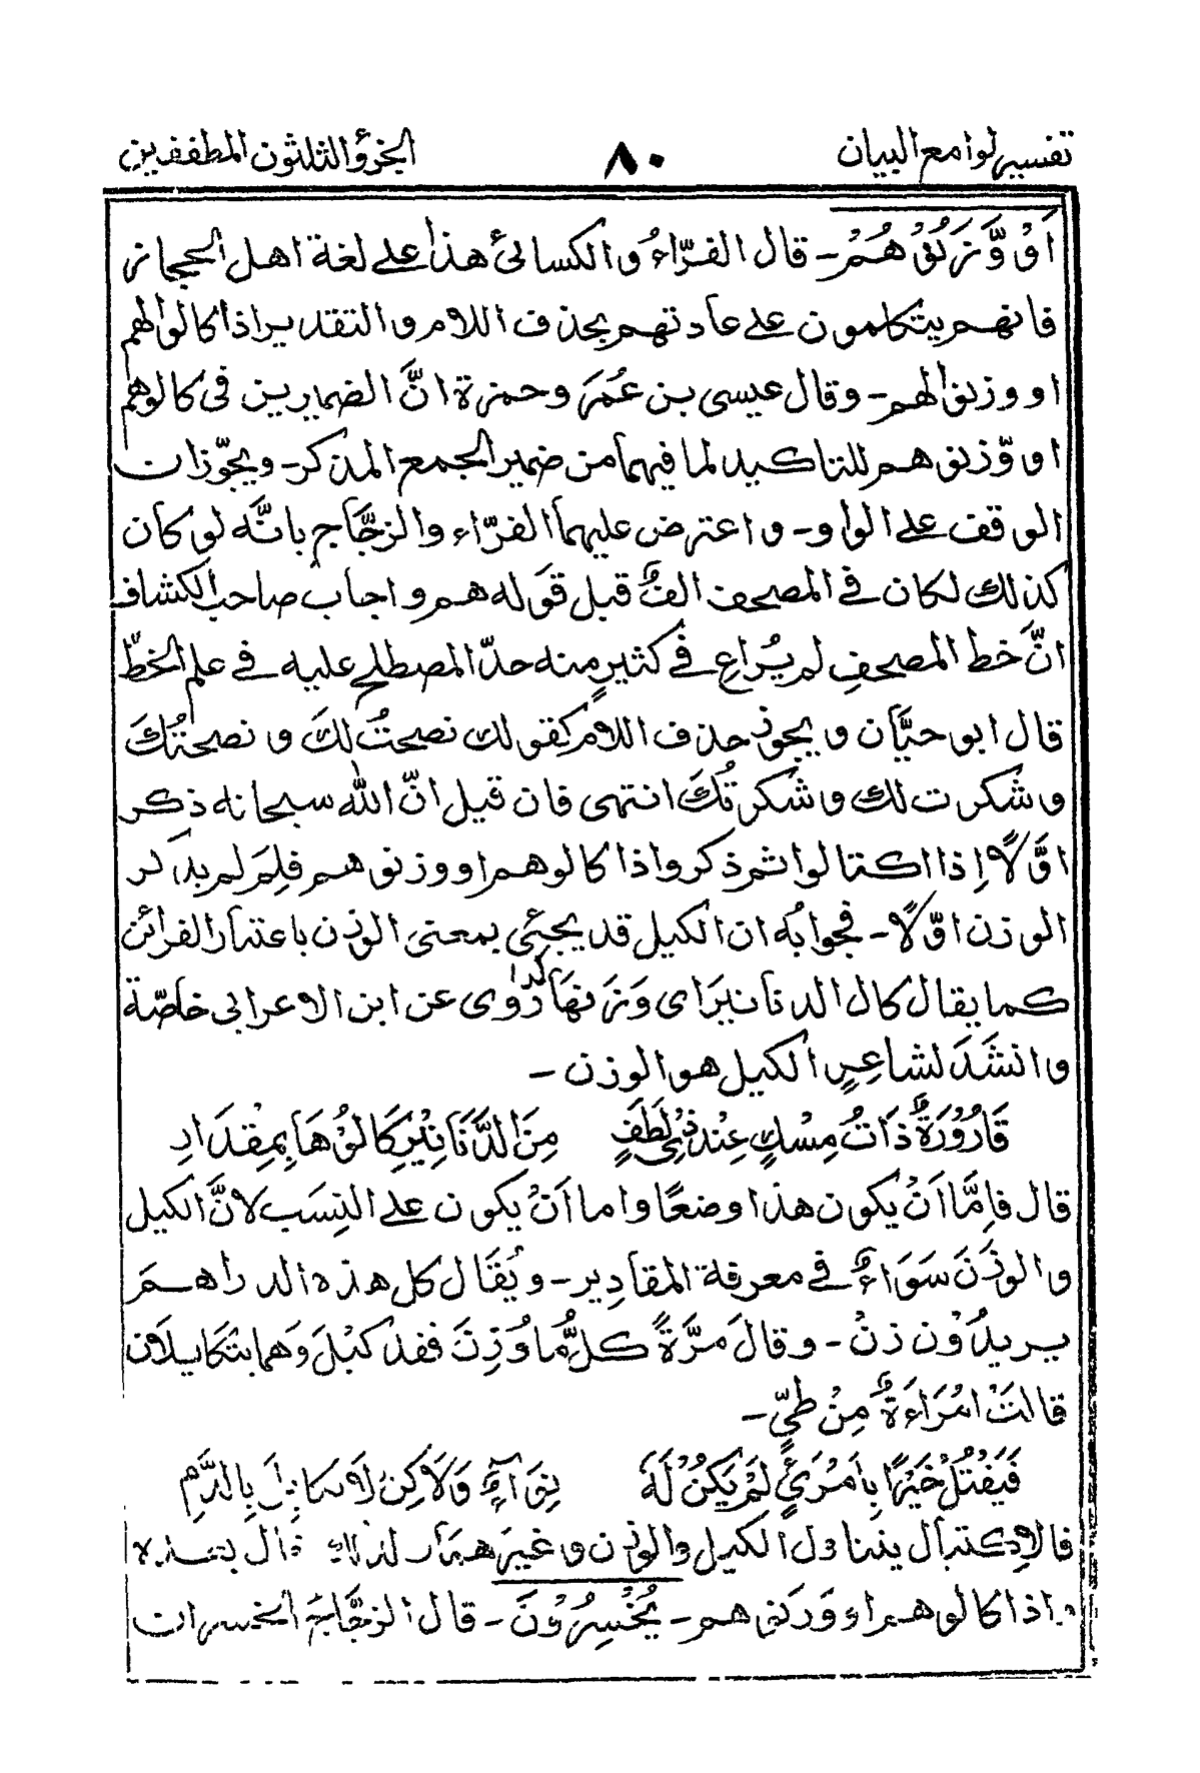 تفسير لوامع البيان ٨٠ الجزؤ الثلثون المطففين
اَوْ وَّزَنُوْهُمْ ـ قال الفرّاءُ والكسائى هذا على لغة اهل الحجاز
فانهم يتكلمون على عادتهم بحذف اللام والتقدير اذا كالوا لهم
او وزنوا لهم ـ وقال عيسى بن عُمَرَ وحمزة انَّ الضميرين فى كالوهم
او وّزنوهم للتاكيد لما فيهما من ضمير الجمع المذكر ـ ويجوّزات
الوقف على الواو ـ واعترض عليهما الفرّاء والزجَّاج بانَّه لو كان
كذلك لكان فى المصحف الفٌ قبل قوله هم واجاب صاحب الكشاف
انَّ خط المصحفِ لم يُراعِ فى كثيرٍ منه حدّ المصطلح عليه فى علم الخطّ
قال ابو حيَّان ويجوز حذف اللام كقولك نصحتُ لكَ ونصحتُكَ
وشكرت لك وشكرتُكَ انتهى فان قيل انّ الله سبحانه ذكر
اوَّلًا اِذا اكتالوا ثم ذكر واذا كالوهم او وزنوهم فلِمَ لم يذكر
الوزن اوّلًا ـ فجوابُه ان الكيل قد يجئى بمعنى الوزن باعتبار القرائن
كما يقال كال الدنانيرَ اى وَزَنَهَا كذا رُوى عن ابن الاعرابى خاصّة
وانشَدَ لشاعِرٍ الكيل هو الوزن ـ
قَارُوْرَةٌ ذَاتُ مِسْكٍ عِنْدَ ذِىْ لَطَفٍ مِنَ الدَّنَانِيْرِ كَالُوْهَا بِمِقْدَادِ
قال فاِمَّا اَنْ يكون هذا وضعًا واما اَنْ يكون على النِسَب لانَّ الكيل
والوزنَ سَوَاءٌ فى معرفة المقادِير ـ ويُقَال كل هذه الدراهمَ
يريدُوْن زنْ ـ وقالَ مرَّةً كلُّ مَّا وُزِنَ فقد كِيْلَ وَهما يتكايلان
قالتْ امْرَاَةٌ مِنْ طىّ ـ
فَيَقْتُلُ خَيْرًا بِامْرَئٍ لَمْ يَكُنْ لَهُ نِوَآءٍ وَلَاكِنْ لَا تكَايُلَ بِالدَّمِ
فالاِكتيال يتناول الكيل والوزن وغيرَهما
اذا كالوهم او وزنوهم ـ يُخْسِرُوْنَ ـ قال الزجَّاج الخسران